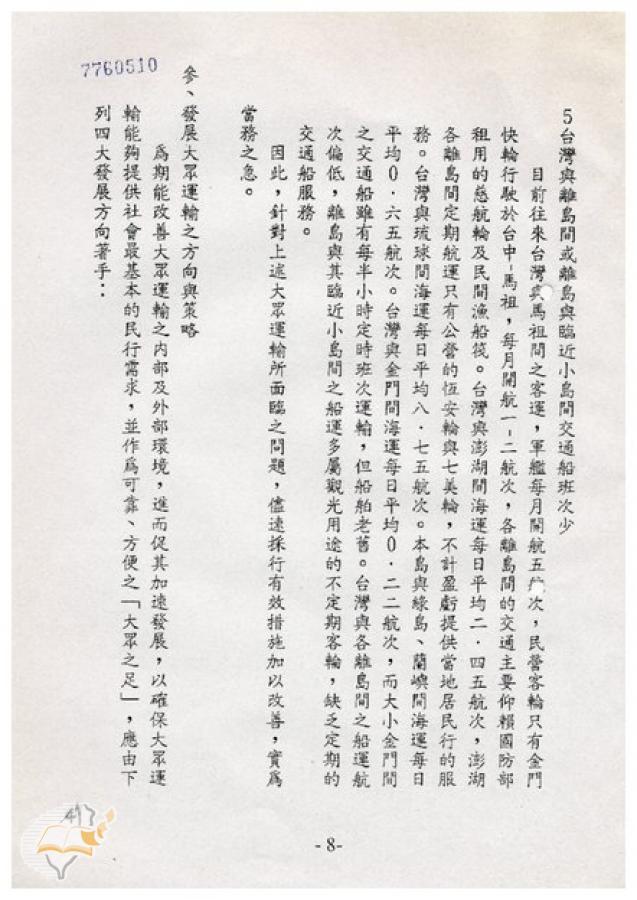 7760510
5台灣與離島間或離島與臨近小島間交通船班次少
目前往來台灣與馬祖間之客運,軍艦每月開航五航次,民營客輪只有金門
快輪行駛於台中-馬祖,每月開航一-二航次,各離島間的交通主要仰賴國防部
租用的慈航輪及民間漁船筏。台灣與澎湖間海運每日平均二.四五航次,澎湖
各離島間定期航運只有公營的恆安輪與七美輪,不計盈虧提供當地居民行的服
務。台灣與琉球間海運每日平均八.七五航次。本島與綠島、蘭嶼間海運每日
平均0.六五航次。台灣與金門間海運每日平均0.二二航次,而大小金門間
之交通船雖有每半小時定時班次運輸,但船舶老舊。台灣與各離島間之船運航
次偏低,離島與其臨近小島間之船運多屬觀光用途的不定期客輪,缺乏定期的
交通船服務。
因此,針對上述大眾運輸所面臨之問題,儘速採行有效措施加以改善,實為
當務之急。
參、發展大眾運輸之方向與策略
為期能改善大眾運輸之內部及外部環境,進而促其加速發展,以確保大眾運
輸能夠提供社會最基本的民行需求,並作為可靠、方便之「大眾之足」,應由下
列四大發展方向著手:
-8-